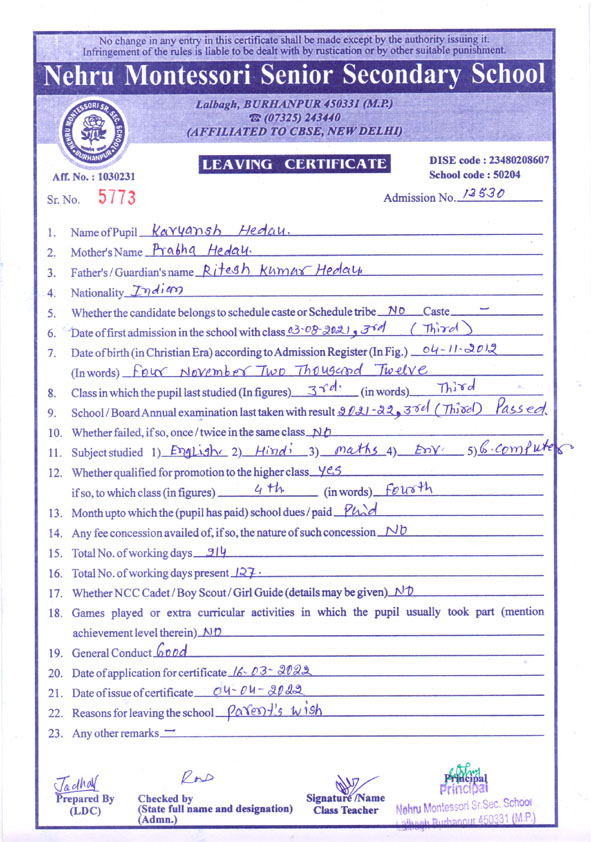 No change in any entry in this certificate shall be made except by the authority issuing it.
Infringement of the rules is liable to be dealt with by rustication or by other suitable punishment.
Nehru Montessori Senior Secondary School
Lalbagh, BURHANPUR 450331 (M.P.)
☎ (07325) 243440
(AFFILIATED TO CBSE, NEW DELHI)
NEHRU MONTESSORI SR. SEC. SCHOOL
BURHANPUR
LEAVING CERTIFICATE
DISE code : 23480208607
School code : 50204
Aff. No. : 1030231
Sr. No. 5773
Admission No. 12530
1. Name of Pupil Karyansh Hedau.
2. Mother's Name Prabha Hedau.
3. Father's / Guardian's name Ritesh Kumar Hedau
4. Nationality Indian
5. Whether the candidate belongs to schedule caste or Schedule tribe NO Caste –
6. Date of first admission in the school with class 03-08-2021, 3rd (Third)
7. Date of birth (in Christian Era) according to Admission Register (In Fig.) 04-11-2012
(In words) Four November Two Thousand Twelve
8. Class in which the pupil last studied (In figures) 3rd. (in words) Third
9. School / Board Annual examination last taken with result 2021-22, 3rd (Third) Passed
10. Whether failed, if so, once / twice in the same class NO
11. Subject studied 1) English 2) Hindi 3) maths 4) Env. 5) G.computer
12. Whether qualified for promotion to the higher class yes
if so, to which class (in figures) 4th (in words) Fourth
13. Month upto which the (pupil has paid) school dues / paid Paid
14. Any fee concession availed of, if so, the nature of such concession NO
15. Total No. of working days 214
16. Total No. of working days present 127.
17. Whether NCC Cadet / Boy Scout / Girl Guide (details may be given) NO
18. Games played or extra curricular activities in which the pupil usually took part (mention
achievement level therein) NO
19. General Conduct Good
20. Date of application for certificate 16-03-2022
21. Date of issue of certificate 04-04-2022
22. Reasons for leaving the school parent's wish
23. Any other remarks –
Jadhav
Prepared By
(LDC)
Checked by
(State full name and designation)
(Admn.)
Signature /Name
Class Teacher
Principal
Principal
Nehru Montessori Sr.Sec. School
Lalbagh Burhanpur 450331 (M.P.)